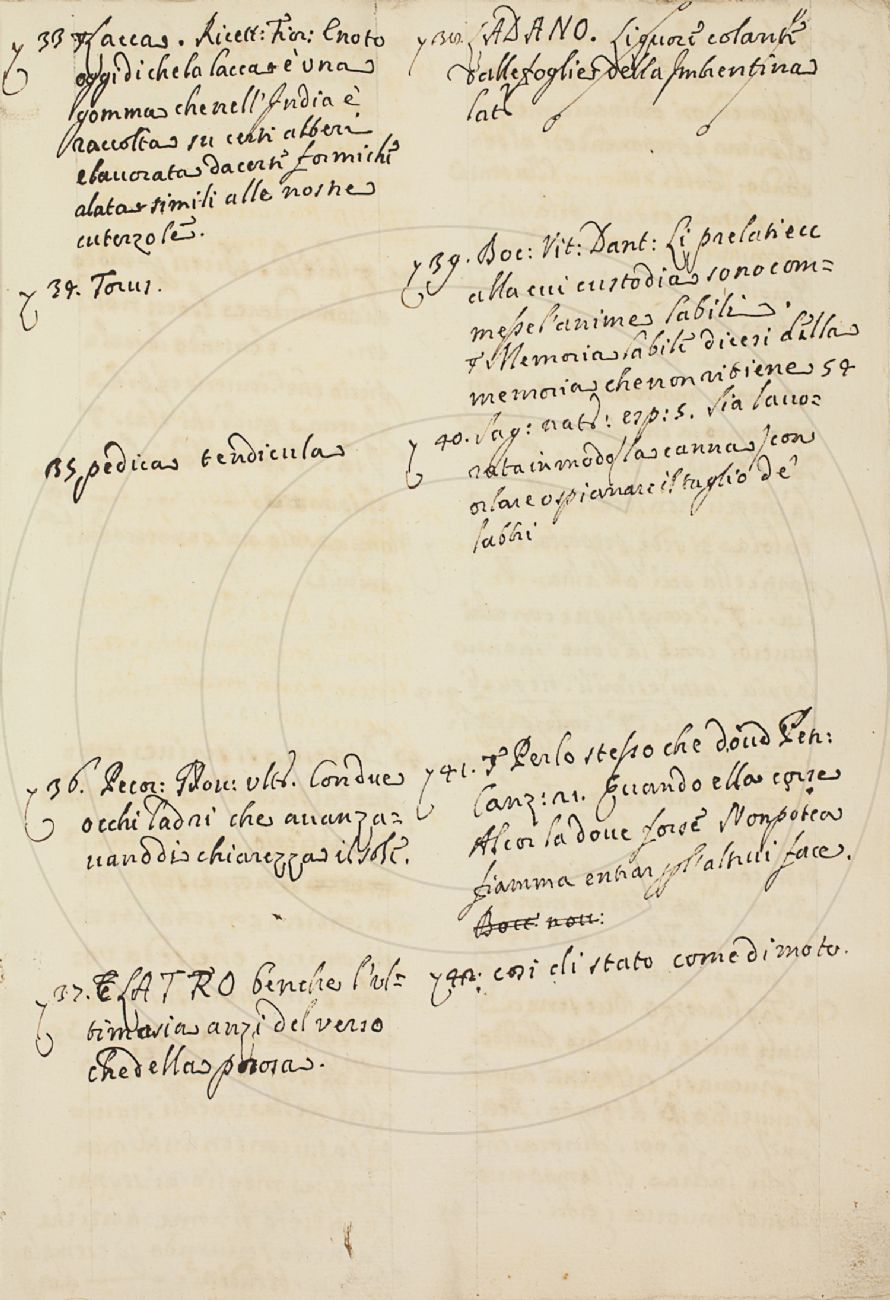 33 Lacca. Ricett: Fior: È noto
oggidi che la lacca è una
gomma che nell'India è
raccolta su certi alberi
e lavorata da certe formiche
alata simili alle nostre
cuterzole.
34. Torus.
35. pedica tendicula
36. Pecor: Nov: ult. Con due
occhi ladri che avanza=
vano di chiarezza il sole.
37. LATRO benche l'ul=
tima sia anzi del verso
che della prosa.
LADANO. Liquore colante
dalle foglie della Imbentina
lat
39. Boc: Vit: Dant: Li prelati ecc
alla cui custodia sono com=
messe l'anime labili.
Memoria labile dicesi della
memoria che non ritiene
40. Sag: nat: esp: 5. Sia lavo=
rata in modo la canna con
orlare o spianare il taglio de'
labbri
41. Per lo stesso che dove Petr:
Canz: 21. Quando ella corse
Al cor la dove forse Non potea
fiamma entrar per l'altrui face.
Bocc: nov:
42. cosi di stato come di moto.